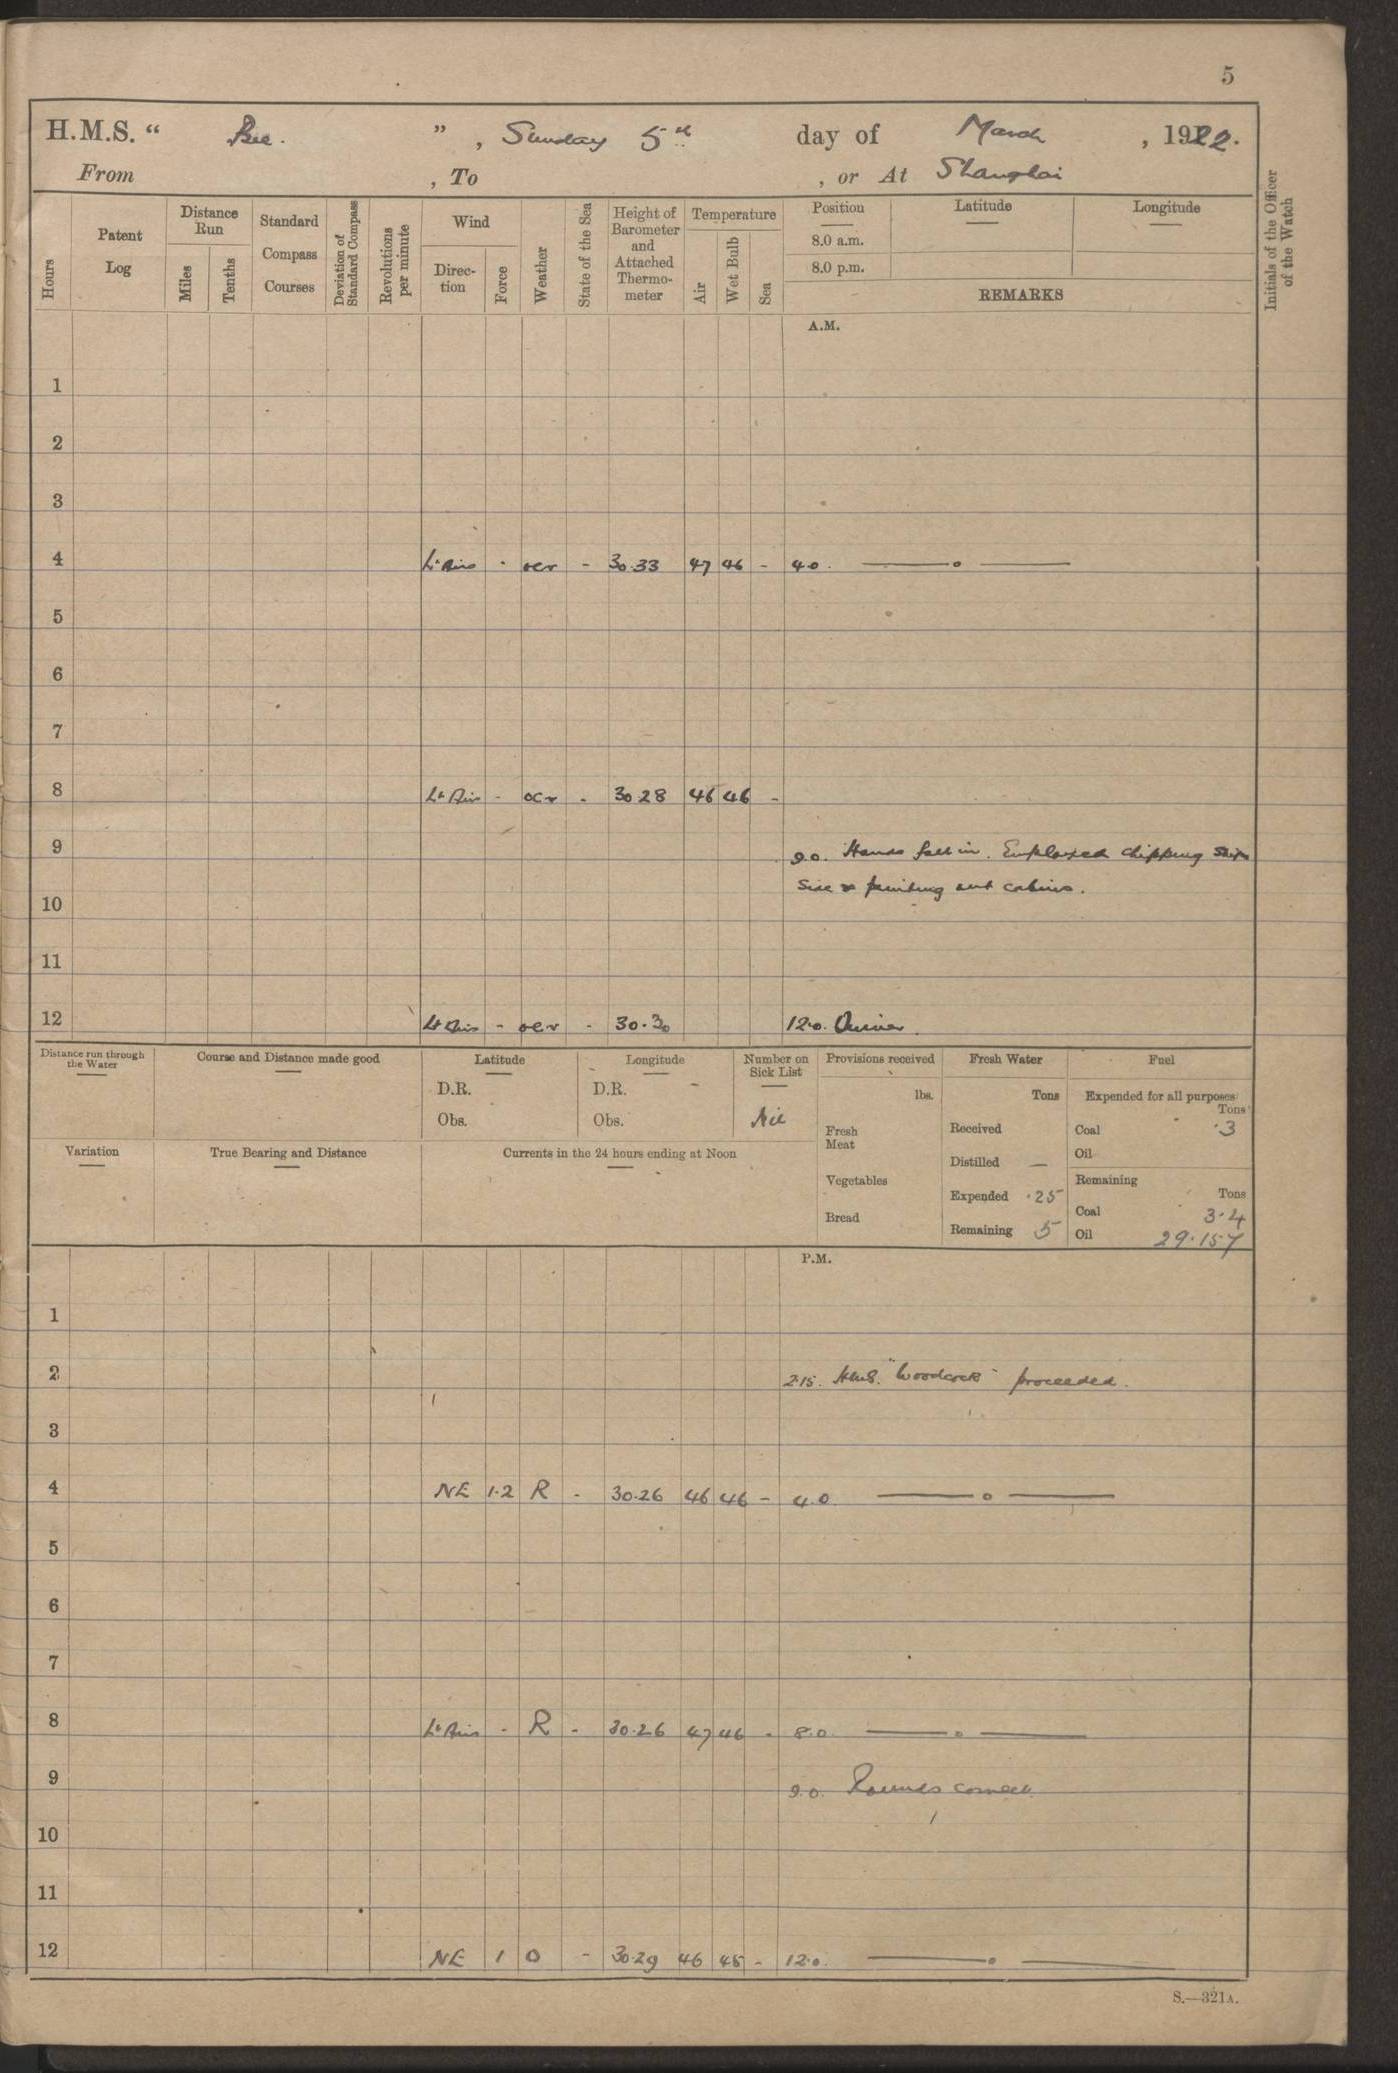 5
H.M.S. “ Bee. ” , Sunday 5th day of March , 1922.
From , To , or At Shanghai
Hours
Patent Log
Distance Run
Miles
Tenths
Standard Compass Courses
Deviation of Standard Compass
Revolutions per minute
Wind
Direc-tion
Force
Weather
State of the Sea
Height of Barometer and Attached Thermo-meter
Temperature
Air
Wet Bulb
Sea
Position
8.0 a.m.
8.0 p.m.
Latitude
Longitude
REMARKS
Initials of the Officer of the Watch
A.M.
1
2
3
4 Lt Airs - ocr - 30.33 47 46 - 4.0. ——o——
5
6
7
8 Lt Airs - ocr - 30.28 46 46 -
9 9.0. Hands fell in. Employed chipping ship
side & painting out cabins.
10
11
12 Lt Airs - ocr - 30.30 12.0.
Distance run through the Water
Course and Distance made good
Latitude
D.R.
Obs.
Longitude
D.R. -
Obs.
Number on Sick List
Nil
Provisions received
lbs.
Fresh Meat
Vegetables
Bread
Fresh Water
Tons
Received
Distilled —
Expended .25
Remaining 5
Fuel
Expended for all purposes
Tons
Coal .3
Oil
Remaining
Tons
Coal 3.4
Oil 29.157
Variation
True Bearing and Distance
Currents in the 24 hours ending at Noon
P.M.
1
2 2.15. H.M.S. "Woodcock" proceeded.
3
4 NE 1.2 R - 30.26 46 46 - 4.0 ——o——
5
6
7
8 Lt Airs - R - 30.26 47 46 - 8.0. ——o——
9 9.0. Rounds correct.
10
11
12 NE 1 O - 30.29 46 45 - 12.0. ——o——
S.—321A.